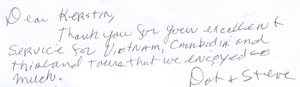 Dear Kerstin,
Thank you for your excellent
service for Vietnam, Cambodia and
Thailand tours that we enjoyed so
much.
Dot & Steve